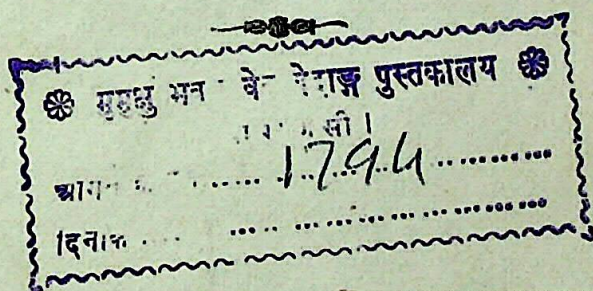 मुमुक्षु भवन वेद वेदाङ्ग पुस्तकालय
वाराणसी।
आगत ...... 1794 ............
दिनांक ...... ............